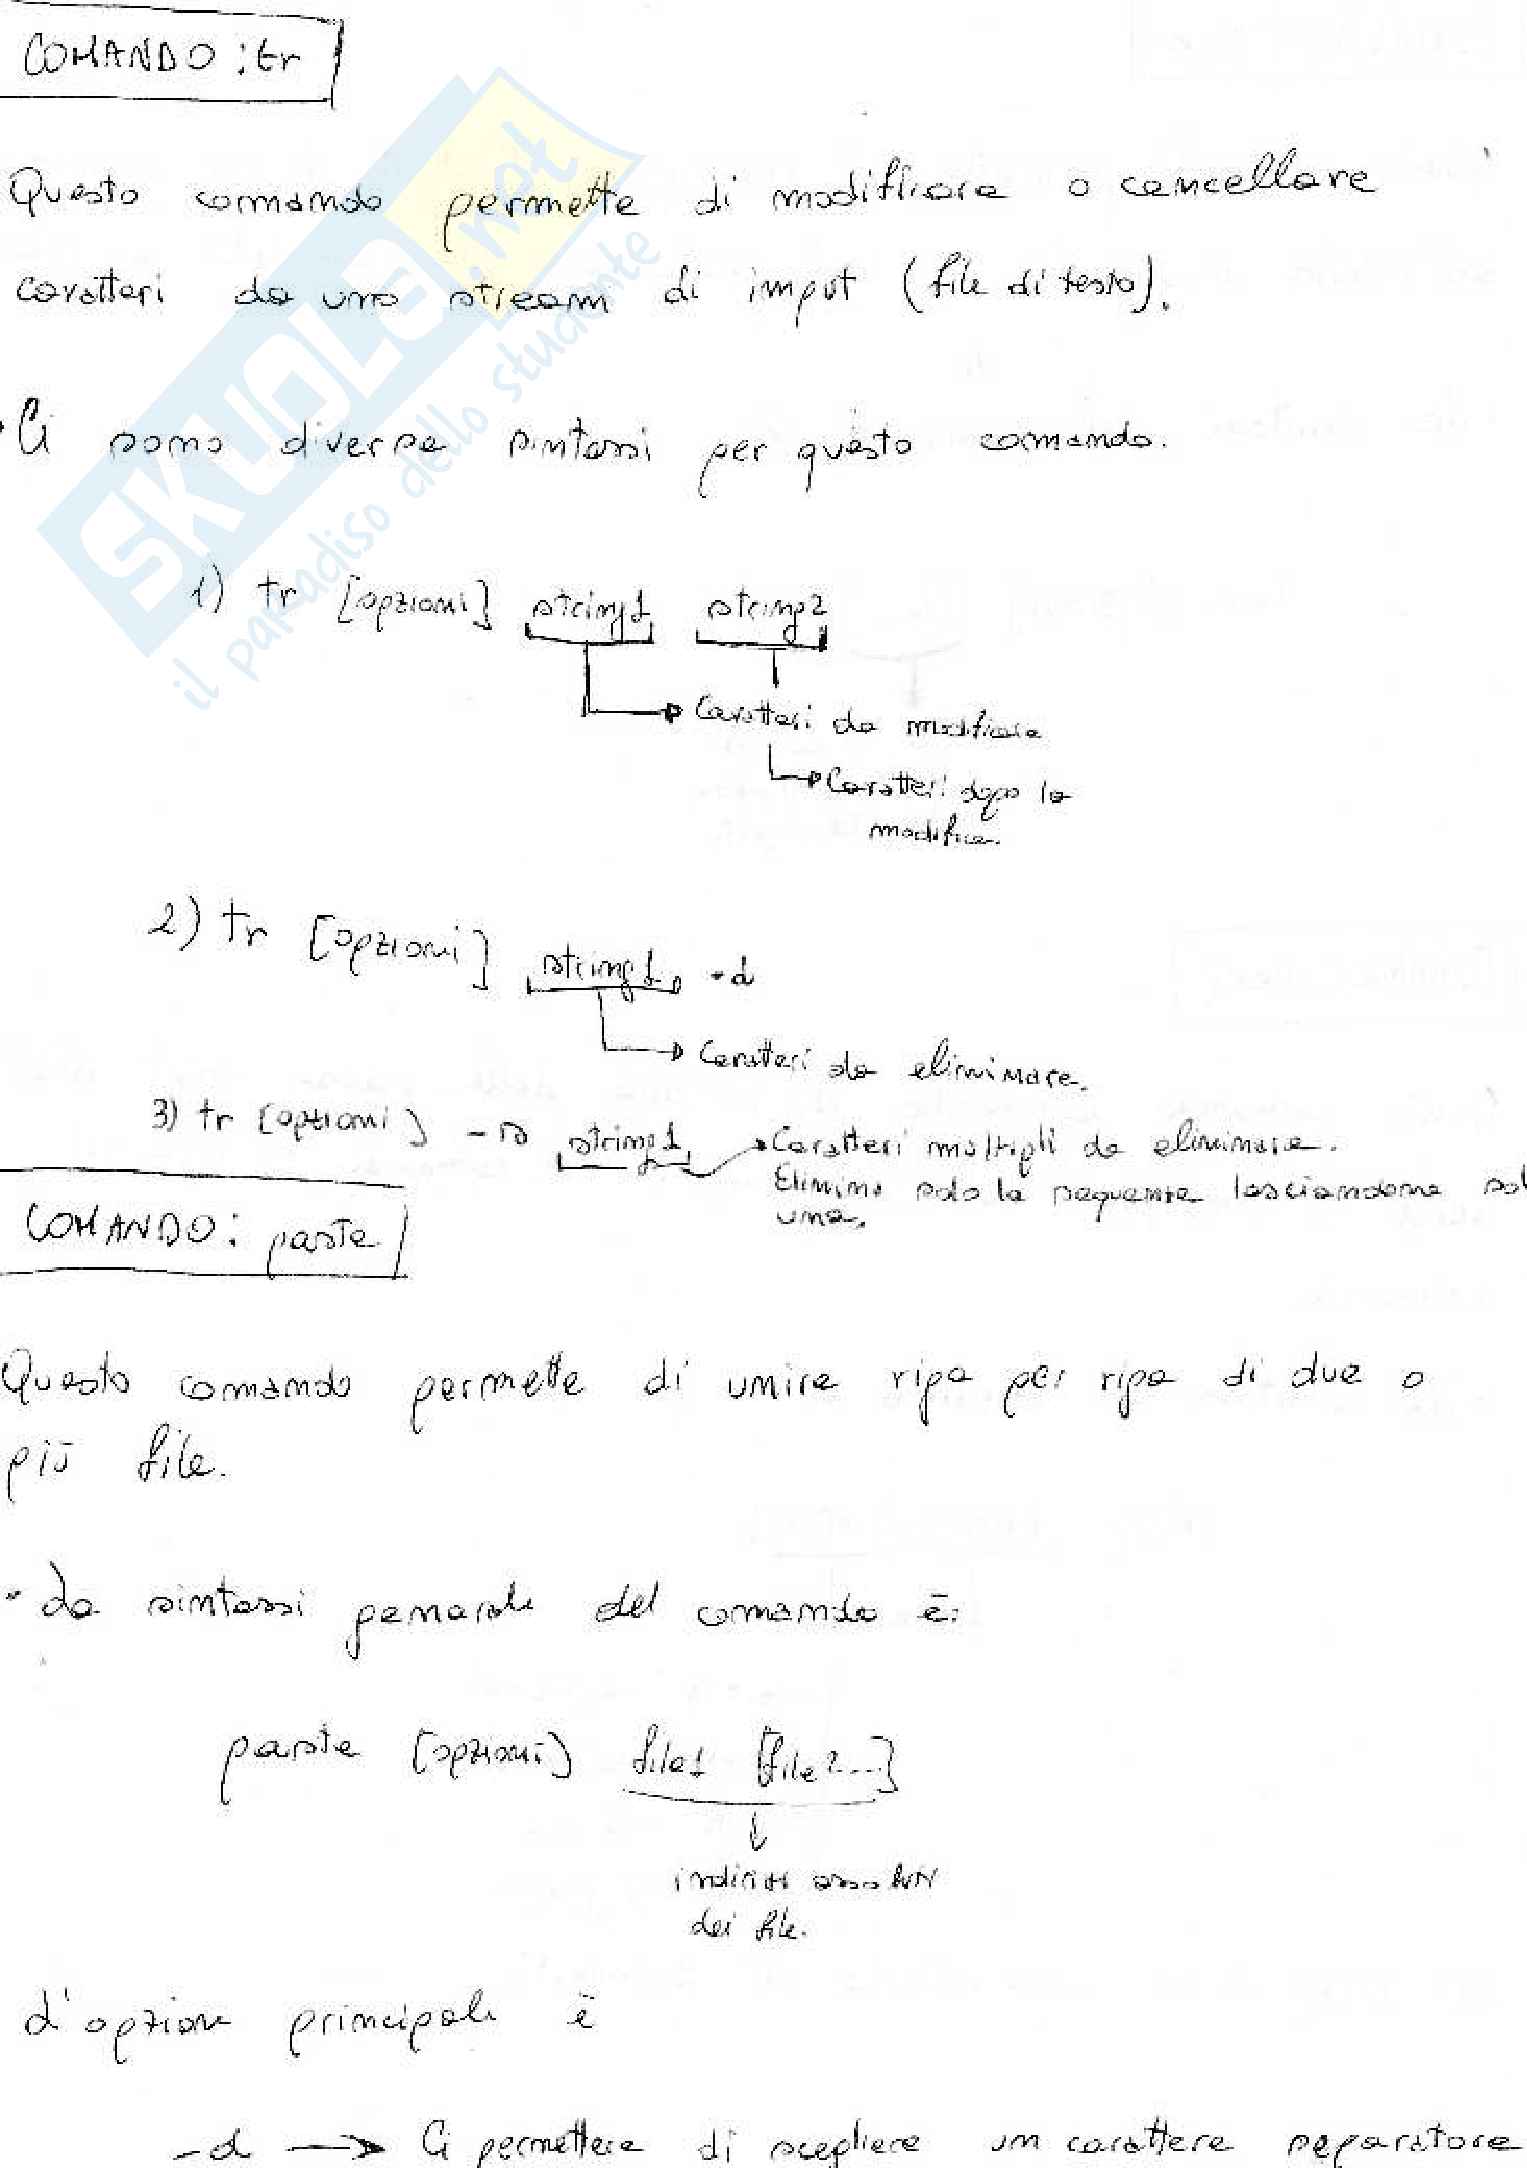 COMANDO: tr
Questo comando permette di modificare o cancellare
caratteri da uno stream di input (file di testo).
• Ci sono diverse sintassi per questo comando.
1) tr [opzioni] string1 string2
Caratteri da modificare
Caratteri dopo la
modifica.
2) tr [opzioni] string1 -d
Caratteri da eliminare.
3) tr [opzioni] -s string1 Caratteri multipli da eliminare.
Elimina solo la sequenza lasciandone sol
una.
COMANDO: paste
Questo comando permette di unire riga per riga di due o
più file.
• La sintassi generale del comando è:
paste [opzioni] file1 [file2...]
indirizzi assoluti
dei file.
L'opzione principale è
-d → Ci permettere di scegliere un carattere separatore
SKUOLA.net
il paradiso dello studente